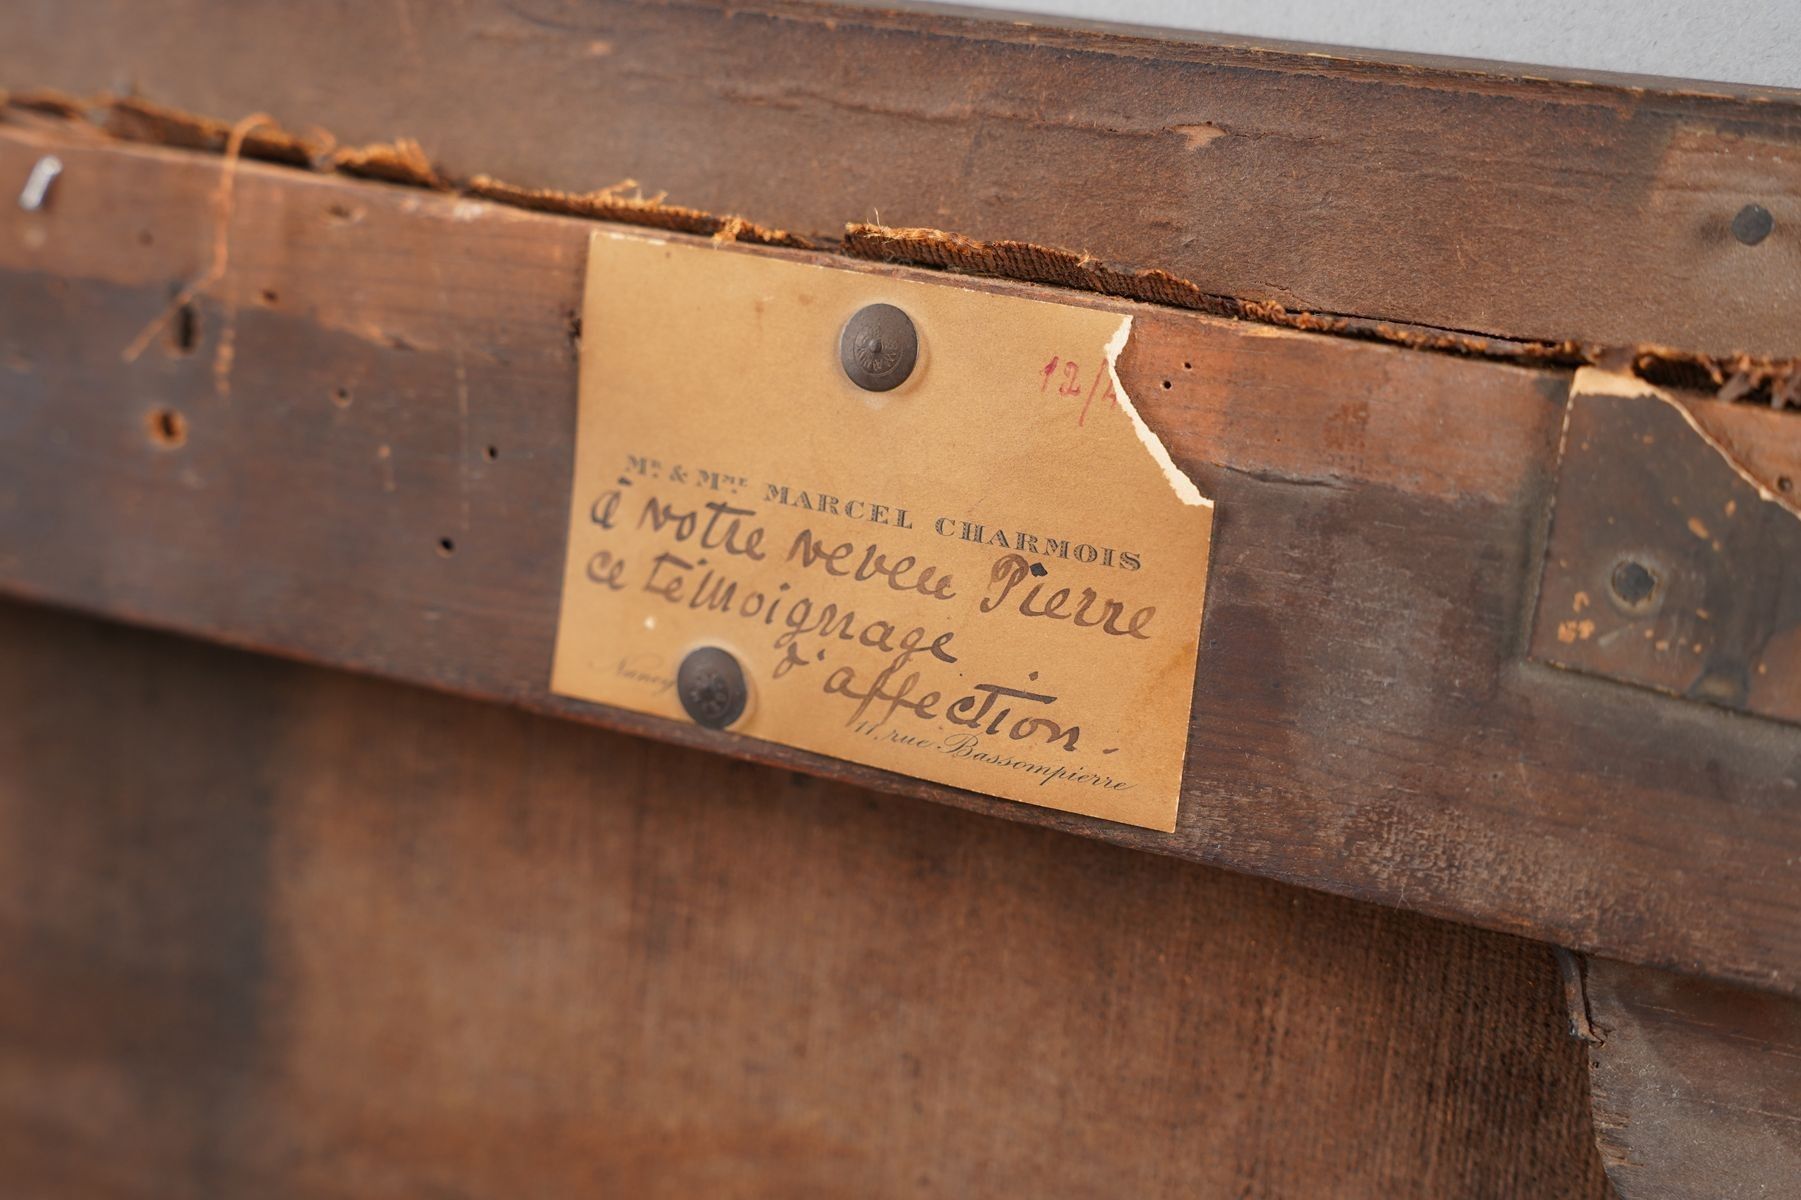 12/
MR & MME MARCEL CHARMOIS
à notre neveu Pierre
ce témoignage
d'affection.
Nancy
11, rue Bassompierre